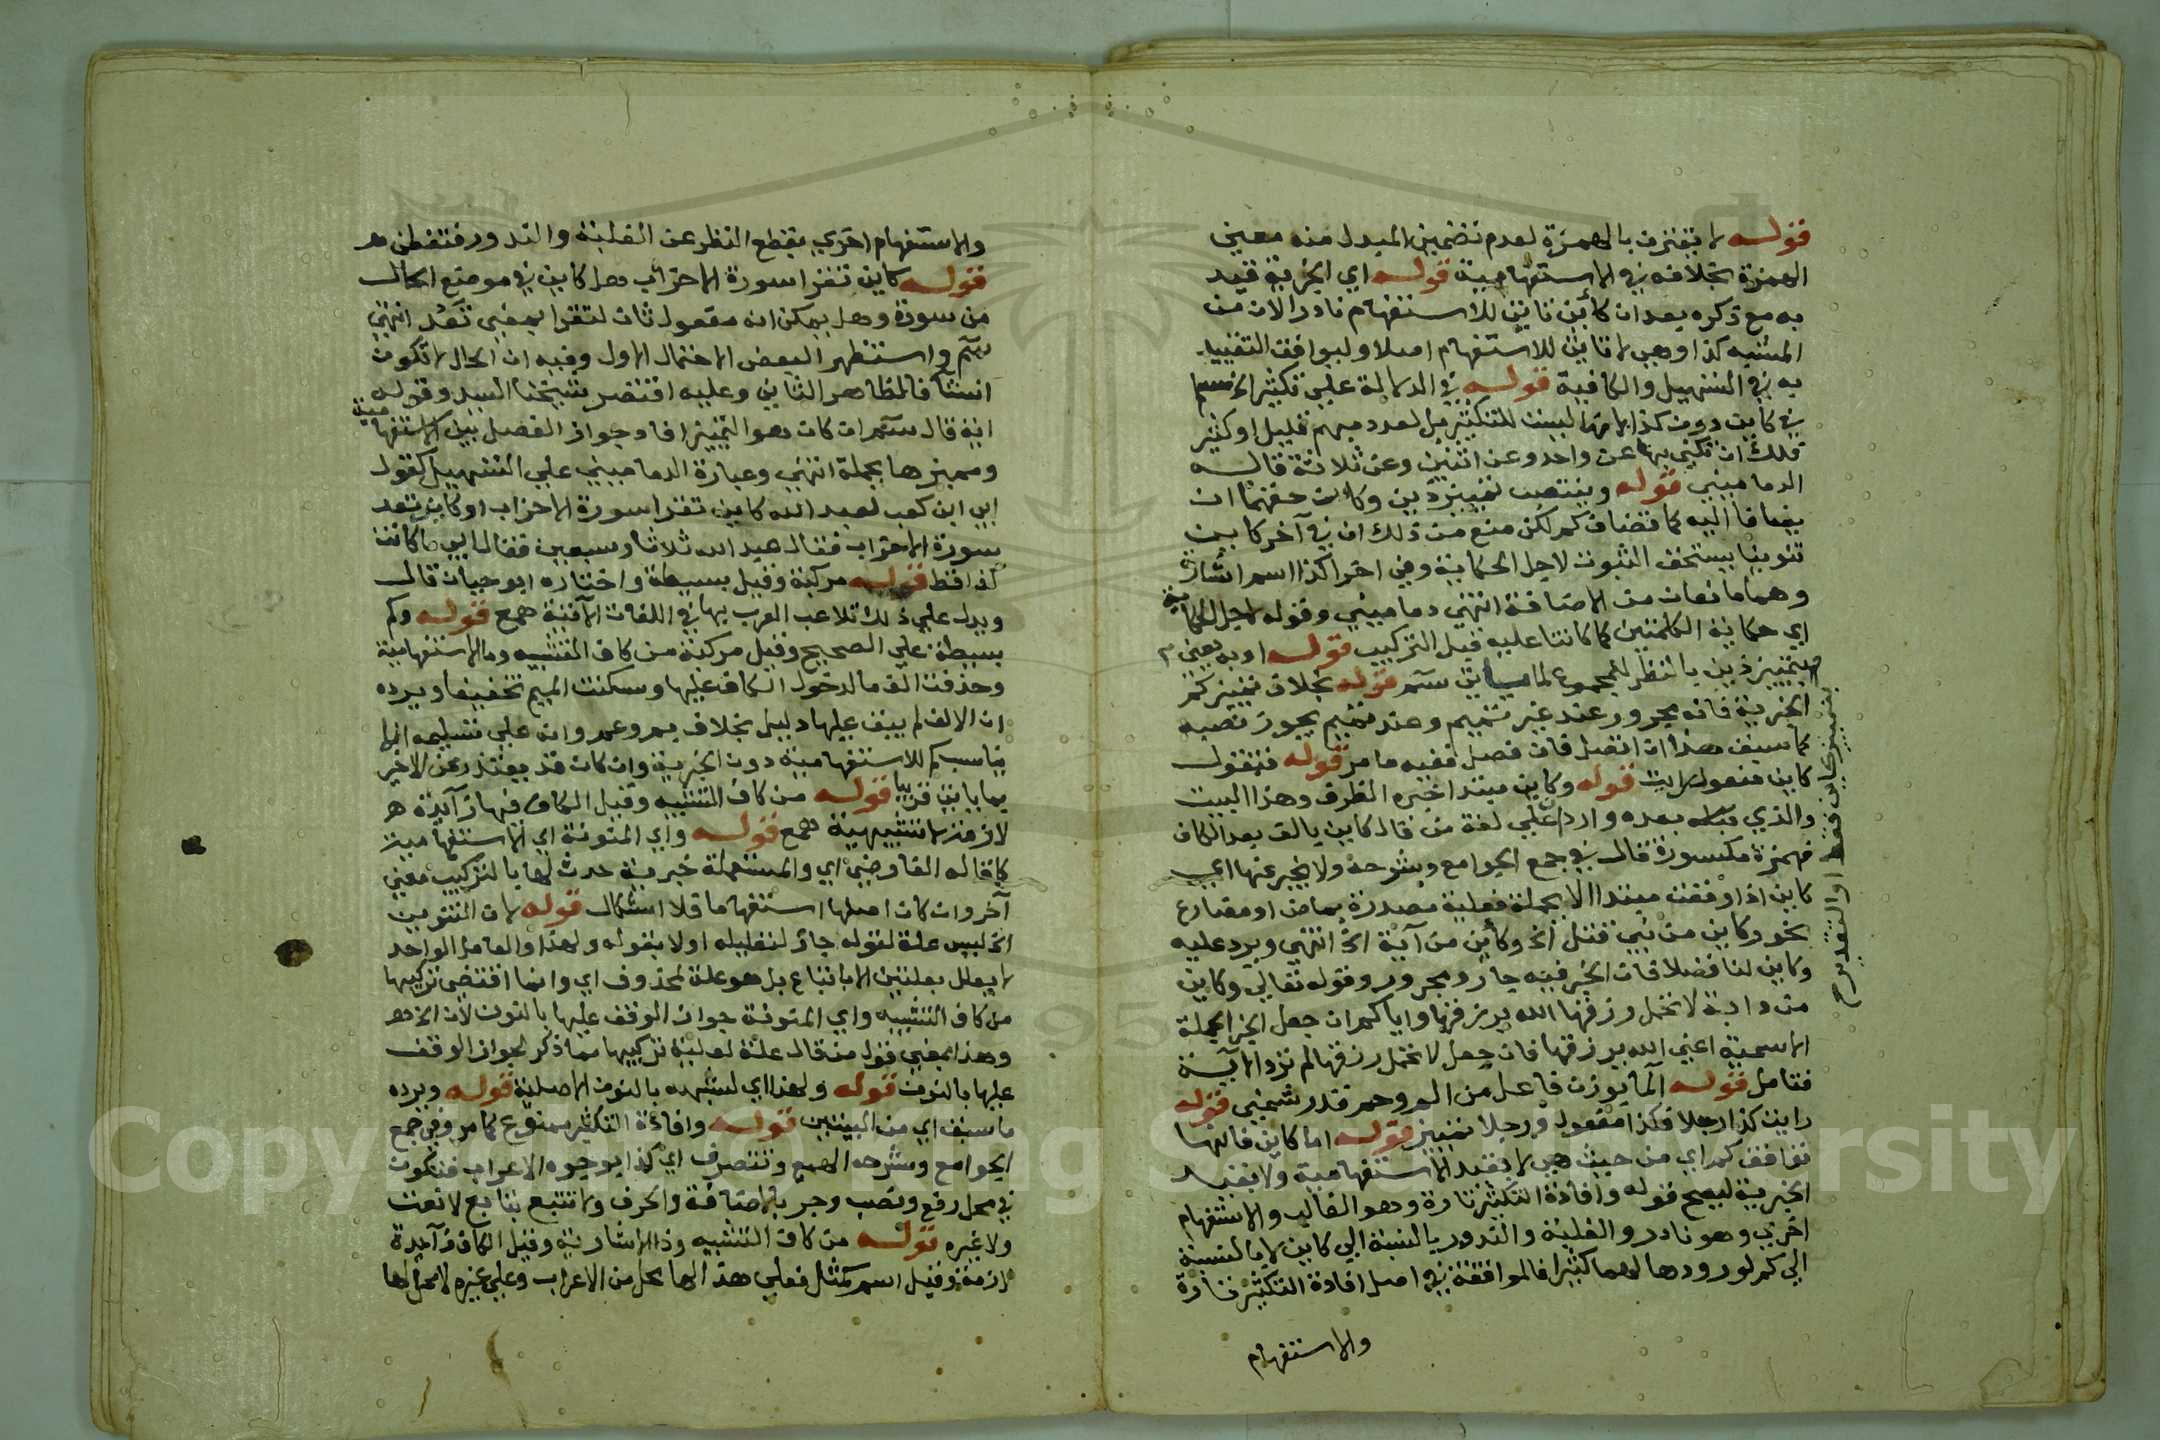 قوله لا يقترن بالهمزة لعدم تضمين المبدل منه معنى
الهمزة بخلافه في الاستفهامية قوله اي الخبرية قيد
به مع ذكره بعد ان كأين تاتي للاستفهام نادرا لان من
المشبه كذا وهي لا تاتي للاستفهام اصلا وليوافق التقييد
به في التسهيل والكافية قوله في الدلالة على تكثير الخ
في كاين دون كذا لانها ليست للتكثير بل لعدد مبهم قليل او كثير
فلك ان تكني بها عن واحد وعن اثنين وعن ثلاثة قاله
الدماميني قوله وينتصب تمييز ذين وكان حقهما ان
يضافا اليه كما تضاف كم لكن منع من ذلك ان في آخر كاين
تنوينا يستحق الثبوت لاجل الحكاية وفي اخر كذا اسم اشارة
وهما مانعان من الاضافة انتهى دماميني وقوله لاجل الحكاية
اي حكاية الكلمتين كما كانتا عليه قبل التركيب قوله او به يعني
بتمييز ذين بالنظر للمجموع لما سم قوله بخلاف تمييز كم
الخبرية فانه مجرور عند غير تميم وعند تميم يجوز نصبه
كما سبق هذا ان اتصل فان فصل ففيه ما مر قوله فتقول
كاين مفعول رايت قوله وكاين مبتدا خبره الظرف وهذا البيت
والذي بعده وارد على لغة من قال كاين بالف بعد الكاف
فهمزة مكسورة قال في جمع الجوامع وشرحه ولا يخبر عنها اي
كاين اذا وقعت مبتدا الا بجملة فعلية مصدرة بماض او مضارع
نحو وكاين من نبي قتل الخ وكأين من آية الخ انتهى ويرد عليه
وكاين لنا فضلا فان الخبر فيه جار ومجرور وقوله تعالى وكاين
من دابة لا تحمل رزقها الله يرزقها واياكم ان جعل الخبر الجملة
الاسمية اعني الله يرزقها فان جعل لا تحمل رزقها لم ترد الآية
فتامل قوله آلما بوزن فاعل من الم وحم قدر شمني قوله
رايت كذا رجلا فكذا مفعول ورجلا تمييز قوله اما كاين فانها
توافق كم اي من حيث هي لا بقيد الاستفهامية ولا بقيد
الخبرية ليصح قوله وافادة التكثير تارة وهو الغالب والاستفهام
اخرى وهو نادر والغلبة والندور بالنسبة الى كاين لا بالنسبة
الى كم لورودها لهما كثيرا فالموافقة في اصل افادة التكثير تارة
والاستفهام
بتمييز كاين فقط او التقدير
والاستفهام اخرى بقطع النظر عن الغلبة والندور فتفطن
قوله كاين تقرا سورة الاحزاب هل كاين في موضع الحال
من سورة وهل يمكن انه مفعول ثان لتقرا بمعنى تعد انتهى
سم واستظهر البعض الاحتمال الاول وفيه ان الحال لا تكون
انشا فالظاهر الثاني وعليه اقتصر شيخنا السيد وقوله
اية قال سم ان كان هو التمييز افاد جواز الفصل بين الاستفهامية
ومميزها بجملة انتهى وعبارة الدماميني على التسهيل كقول
ابي ابن كعب لعبد الله كاين تقرا سورة الاحزاب او كاين تعد
سورة الاحزاب فقال عبد الله ثلاثا وسبعين فقال ابي ما كانت
كذا قط قوله مركبة وقيل بسيطة واختاره ابو حيان قال
ويدل على ذلك تلاعب العرب بها في اللغات الآتية همع قوله وكم
بسيطة على الصحيح وقيل مركبة من كاف التشبيه وما الاستفهامية
وحذفت الف ما لدخول الكاف عليها وسكنت الميم تخفيفا ويرده
ان الالف لم يبق عليها دليل بخلاف بم وعم وانه على تسليمه انما
يناسب كم للاستفهامية دون الخبرية وان كان قد يعتذر عن الاخير
بما ياتي قريبا قوله من كاف التشبيه وقيل الكاف فيها زآيدة
لازمة لا تشبيهية همع قوله واي المنونة اي الاستفهامية
كما قاله الفارضي اي والمستعملة خبرية حدث لها بالتركيب معنى
آخر وان كان اصلها استفهاما فلا اشكال قوله لان التنوين
الخ ليس علة لقوله جاز لتعليله اولا بقوله ولهذا والعامل الواحد
لا يعلل بعلتين الا باتباع بل هو علة لمحذوف اي وانما اقتضى تركيبها
من كاف التشبيه واي المنونة جواز الوقف عليها بالنون لان الخ
وهذا بمعنى قول من قال علة لعلية تركيبها مما ذكر لجواز الوقف
عليها بالنون قوله ولهذا اي لشبهه بالنون الاصلية قوله ويرده
ما سبق اي من البيتين قوله وافادة التكثير ممنوع كما مر وفي جمع
الجوامع وشرحه الهمع وتتصرف اي كذا بوجوه الاعراب فتكون
في محل رفع ونصب وجر بالاضافة والحرف ولا تتبع بتابع لا نعت
ولا غيره قوله من كاف التشبيه وذا الاشارية وقيل الكاف زآيدة
لازمة وقيل اسم كمثل فعلى هذا لها محل من الاعراب وعلى غيره لا محل لها
Copyright © King Saud University